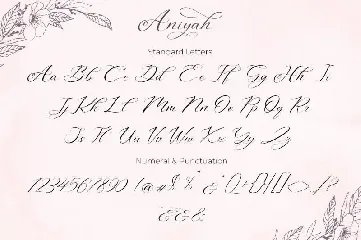 Aniyah
Standard Letters
Aa Bb Cc Dd Ee Ff Gg Hh Ii
Jj Kk Ll Mm Nn Oo Pp Qq Rr
Ss Tt Uu Vv Ww Xx Yy Zz
Numeral & Punctuation
1234567890 !@#$% & ()+{}[]<>.,!?